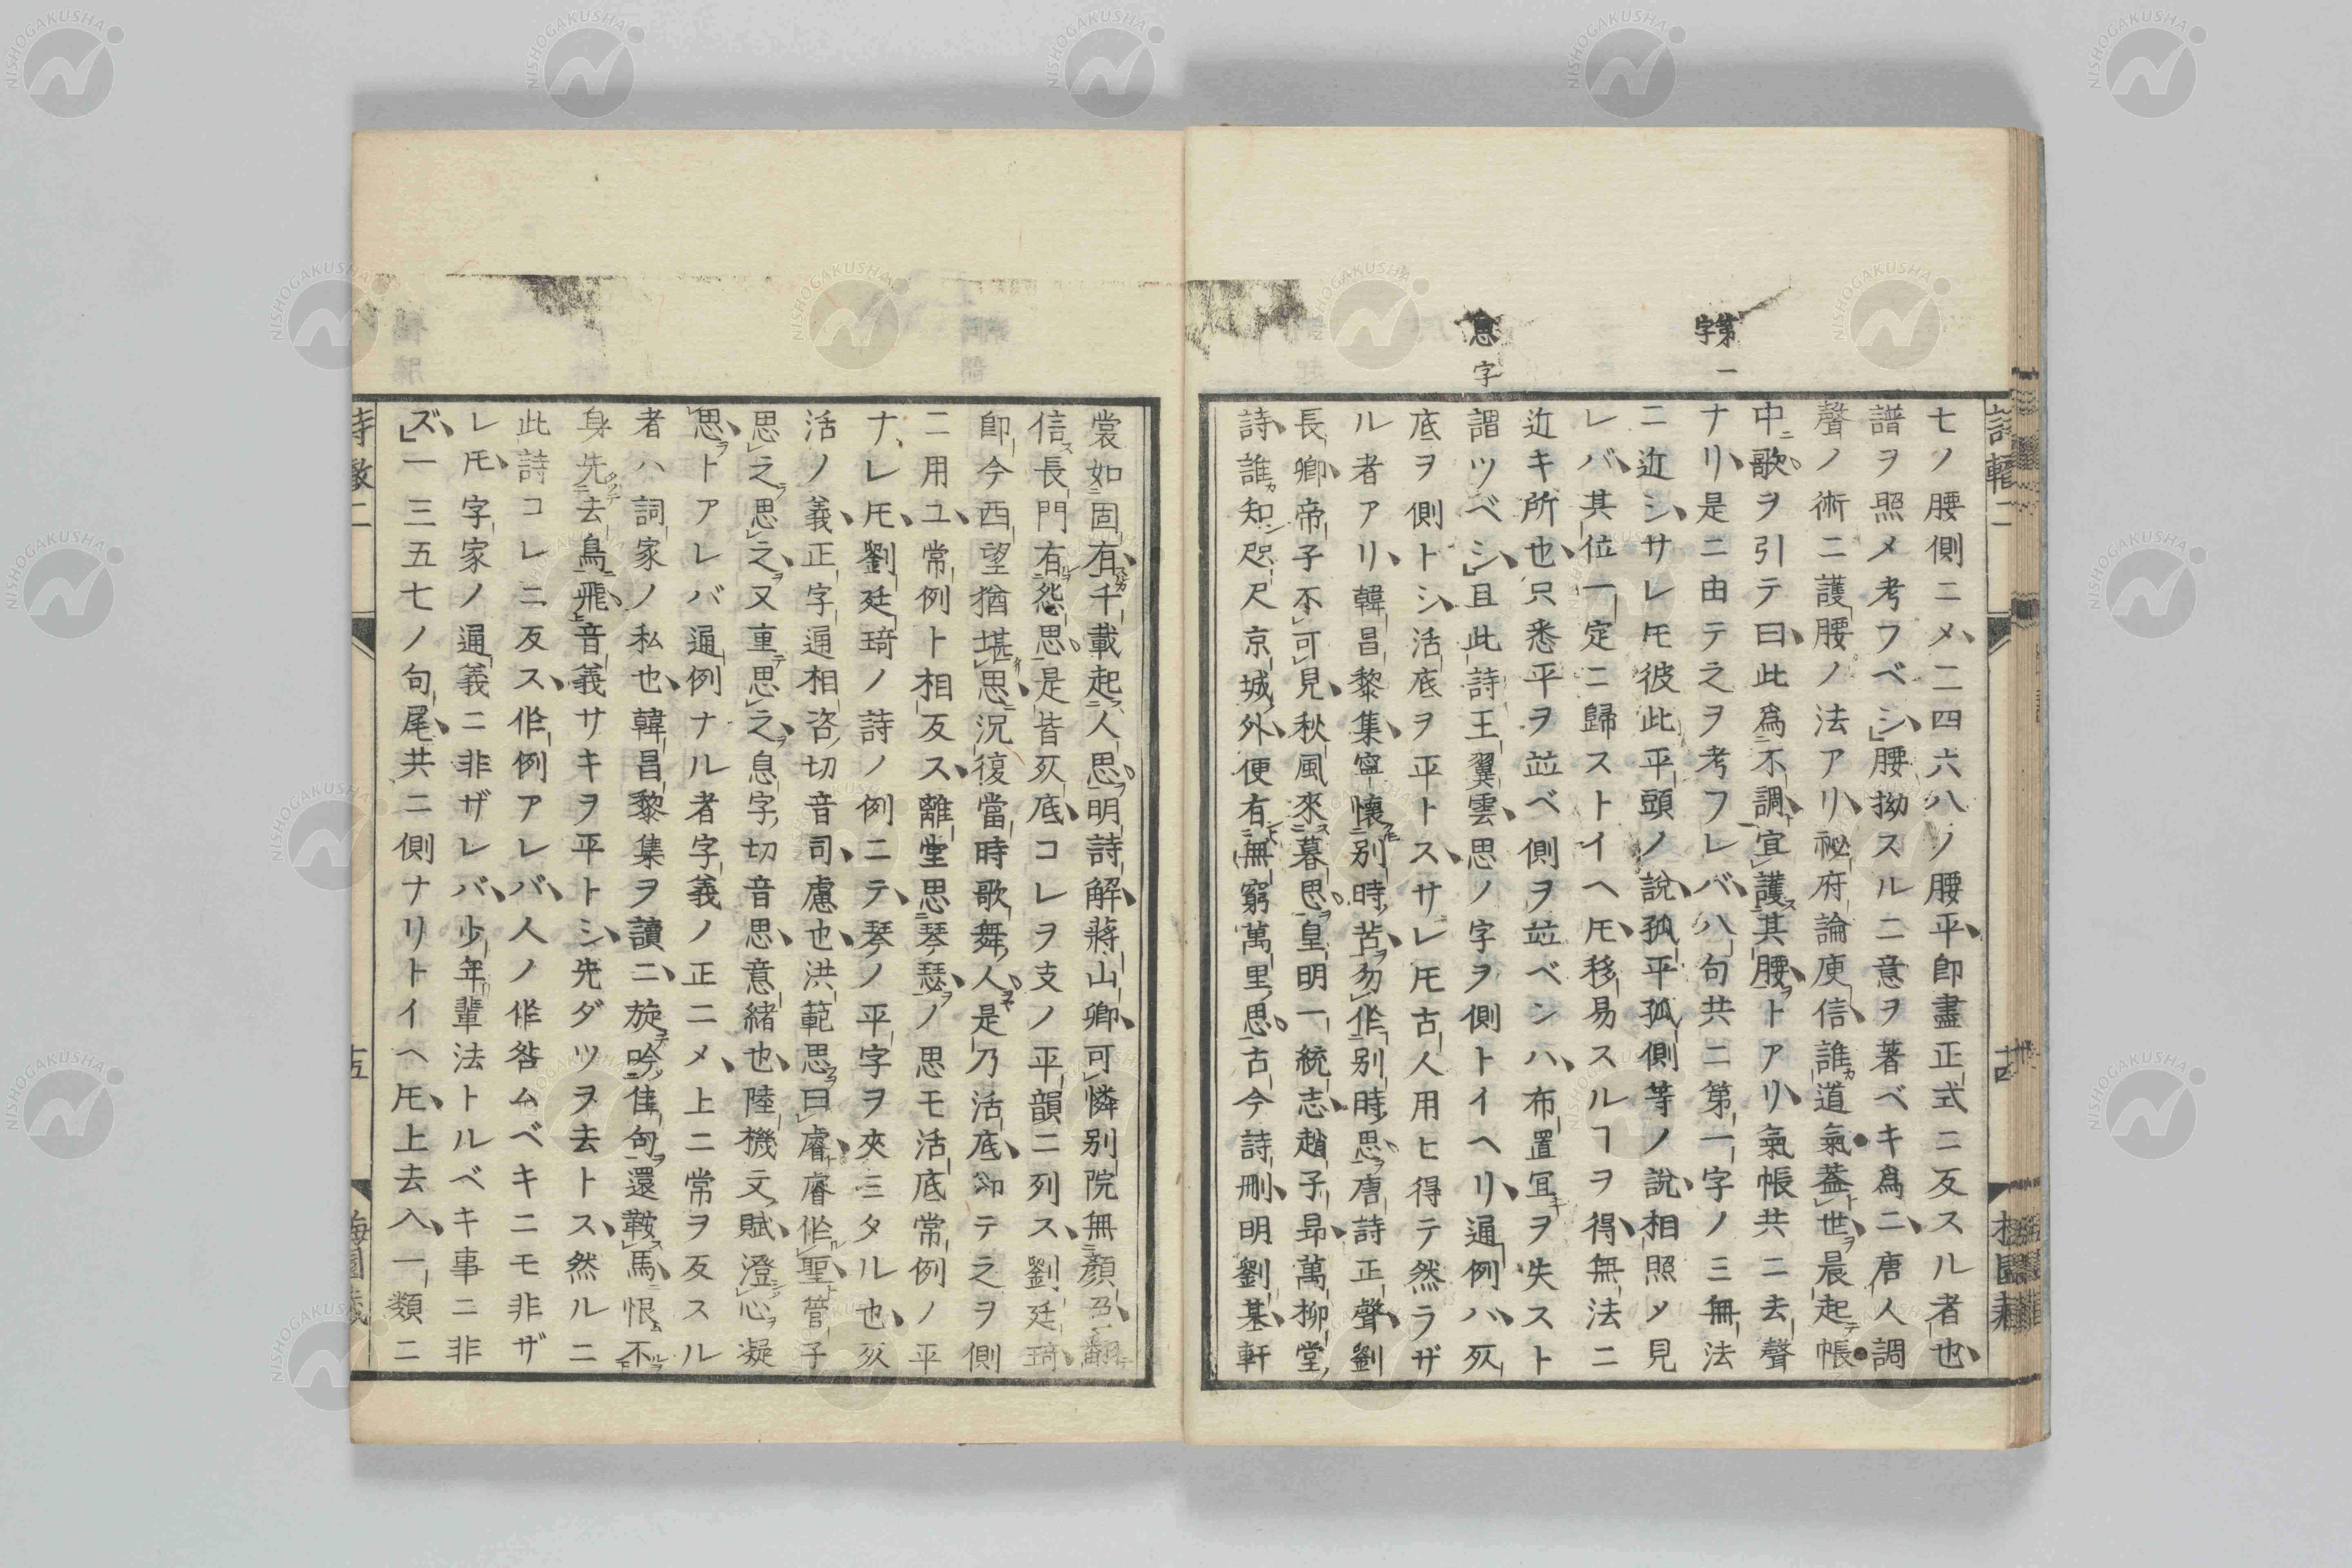 第一
字
思字
詩轍二
七ノ腰側ニメ二四六八ノ腰平即盡正式ニ反スル者也
譜ヲ照メ考フベシ腰拗スルニ意ヲ著ベキ爲ニ唐人調
聲ノ術ニ護腰ノ法アリ祕府論庾信誰道氣蓋世晨起帳
中歌ヲ引テ曰此爲不調宜護其腰トアリ氣帳共ニ去聲
ナリ是ニ由テ之ヲ考フレバ八句共ニ第一字ノ三無法
ニ近シサレ𪜈彼此平頭ノ說孤平孤側等ノ說相照メ見
レバ其位一定ニ歸ストイヘ𪜈移易スルヿヲ得無法ニ
近キ所也只悉平ヲ竝ベ側ヲ竝ベンハ布置宜ヲ失スト
謂ツベシ且此詩王翼雲思ノ字ヲ側トイヘリ通例ハ死
底ヲ側トシ活底ヲ平トスサレ𪜈古人用ヒ得テ然ラザ
ル者アリ韓昌黎集寧懷別時苦勿作別時思唐詩正聲劉
長卿帝子不可見秋風來暮思皇明一統志趙子昻萬柳堂
詩誰知咫尺京城外便有無窮萬里思古今詩刪明劉基軒
裳如固有千載起人思明詩解蔣山卿可憐別院無顏色翻
信長門有怨思是皆死底コレヲ支ノ平韻ニ列ス劉廷琦
即今西望猶堪思況復當時歌舞人是乃活底却テ之ヲ側
ニ用ユ常例ト相反ス離堂思琴瑟ノ思モ活底常例ノ平
ナレ𪜈劉廷琦ノ詩ノ例ニテ琴ノ平字ヲ夾ミタル也死
活ノ義正字通相咨切音司慮也洪範思曰睿睿作聖管子
思之思之又重思之息字切音思意緒也陸機文賦澄心凝
思トアレバ通例ナル者字義ノ正ニメ上ニ常ヲ反スル
者ハ詞家ノ私也韓昌黎集ヲ讀ニ旋吟佳句還鞍馬恨不
身先去鳥飛音義サキヲ平トシ先ダツヲ去トス然ルニ
此詩コレニ反ス作例アレバ人ノ作咎ムベキニモ非ザ
レ𪜈字家ノ通義ニ非ザレバ少年輩法トルベキ事ニ非
ズ一三五七ノ句尾共ニ側ナリトイヘ𪜈上去入一類ニ